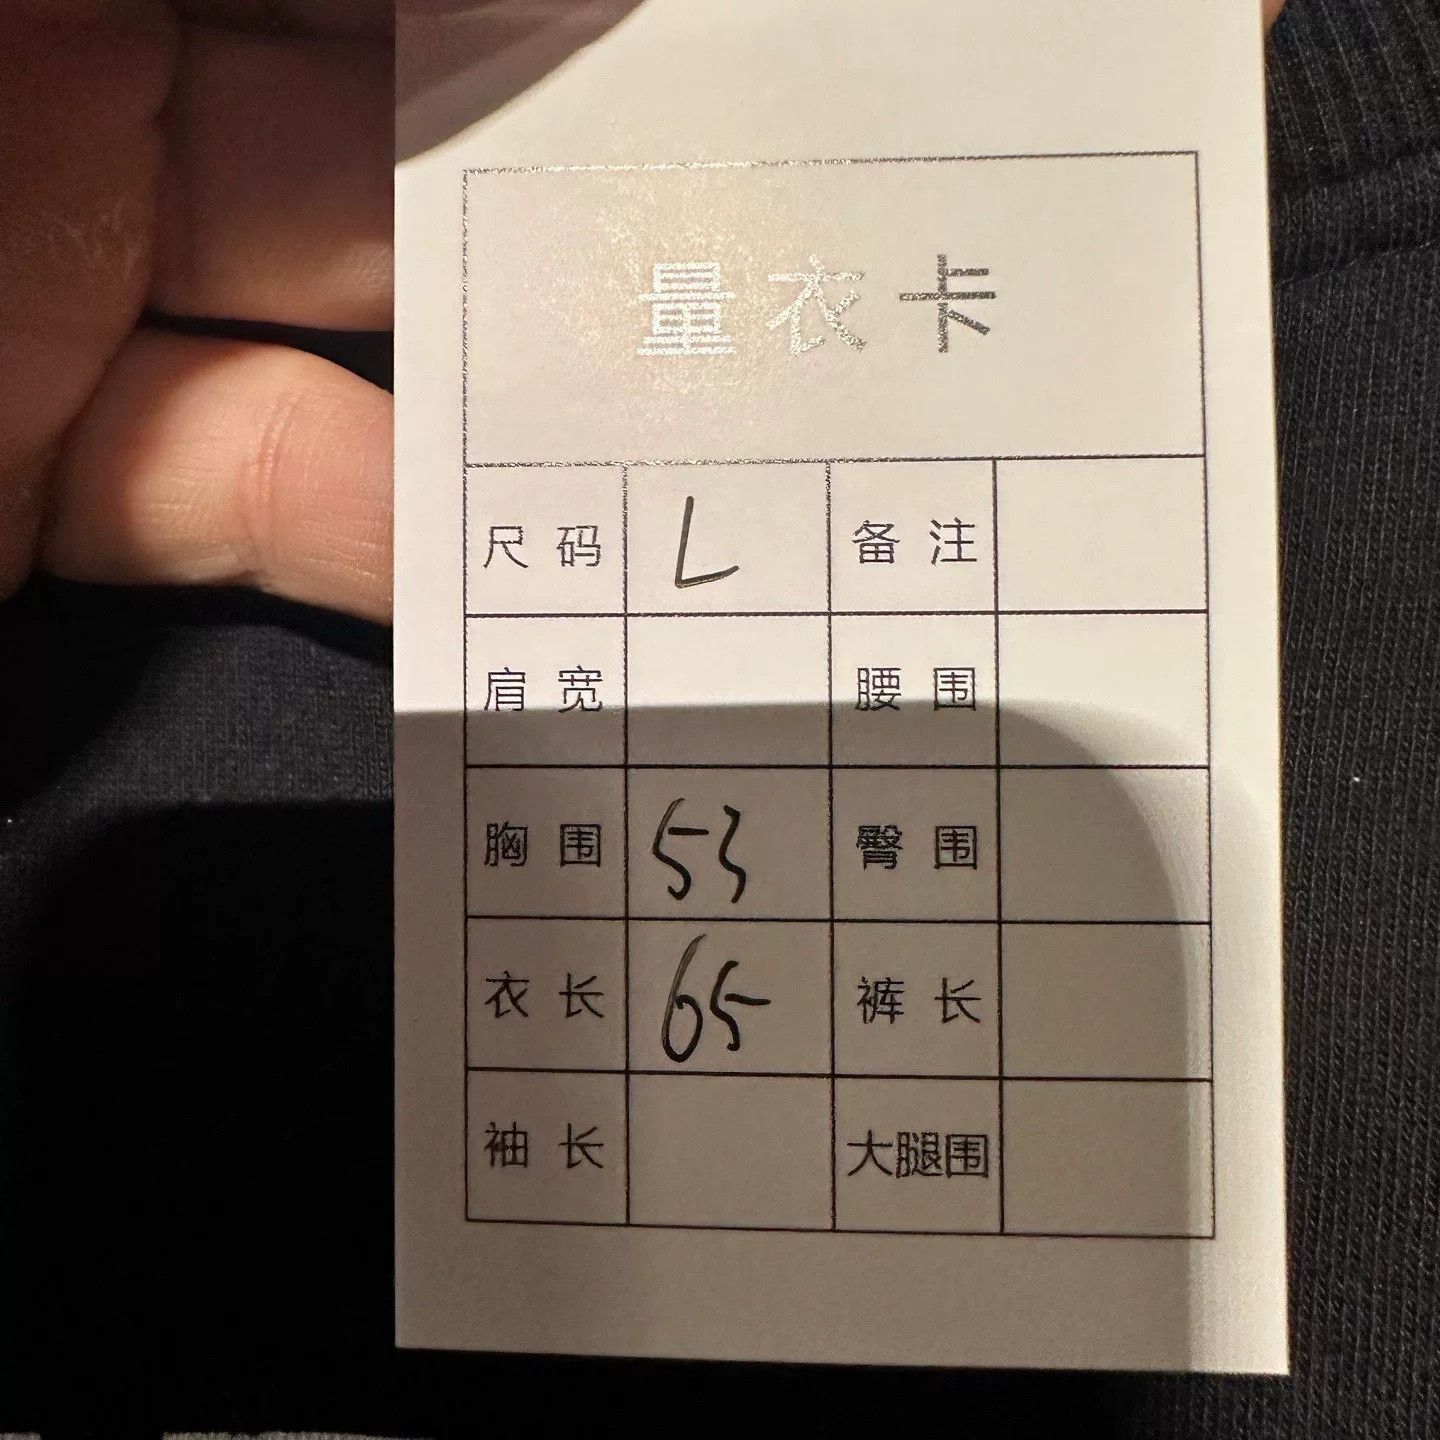 量衣卡
尺码 L 备注
肩宽 腰围
胸围 53 臀围
衣长 65 裤长
袖长 大腿围